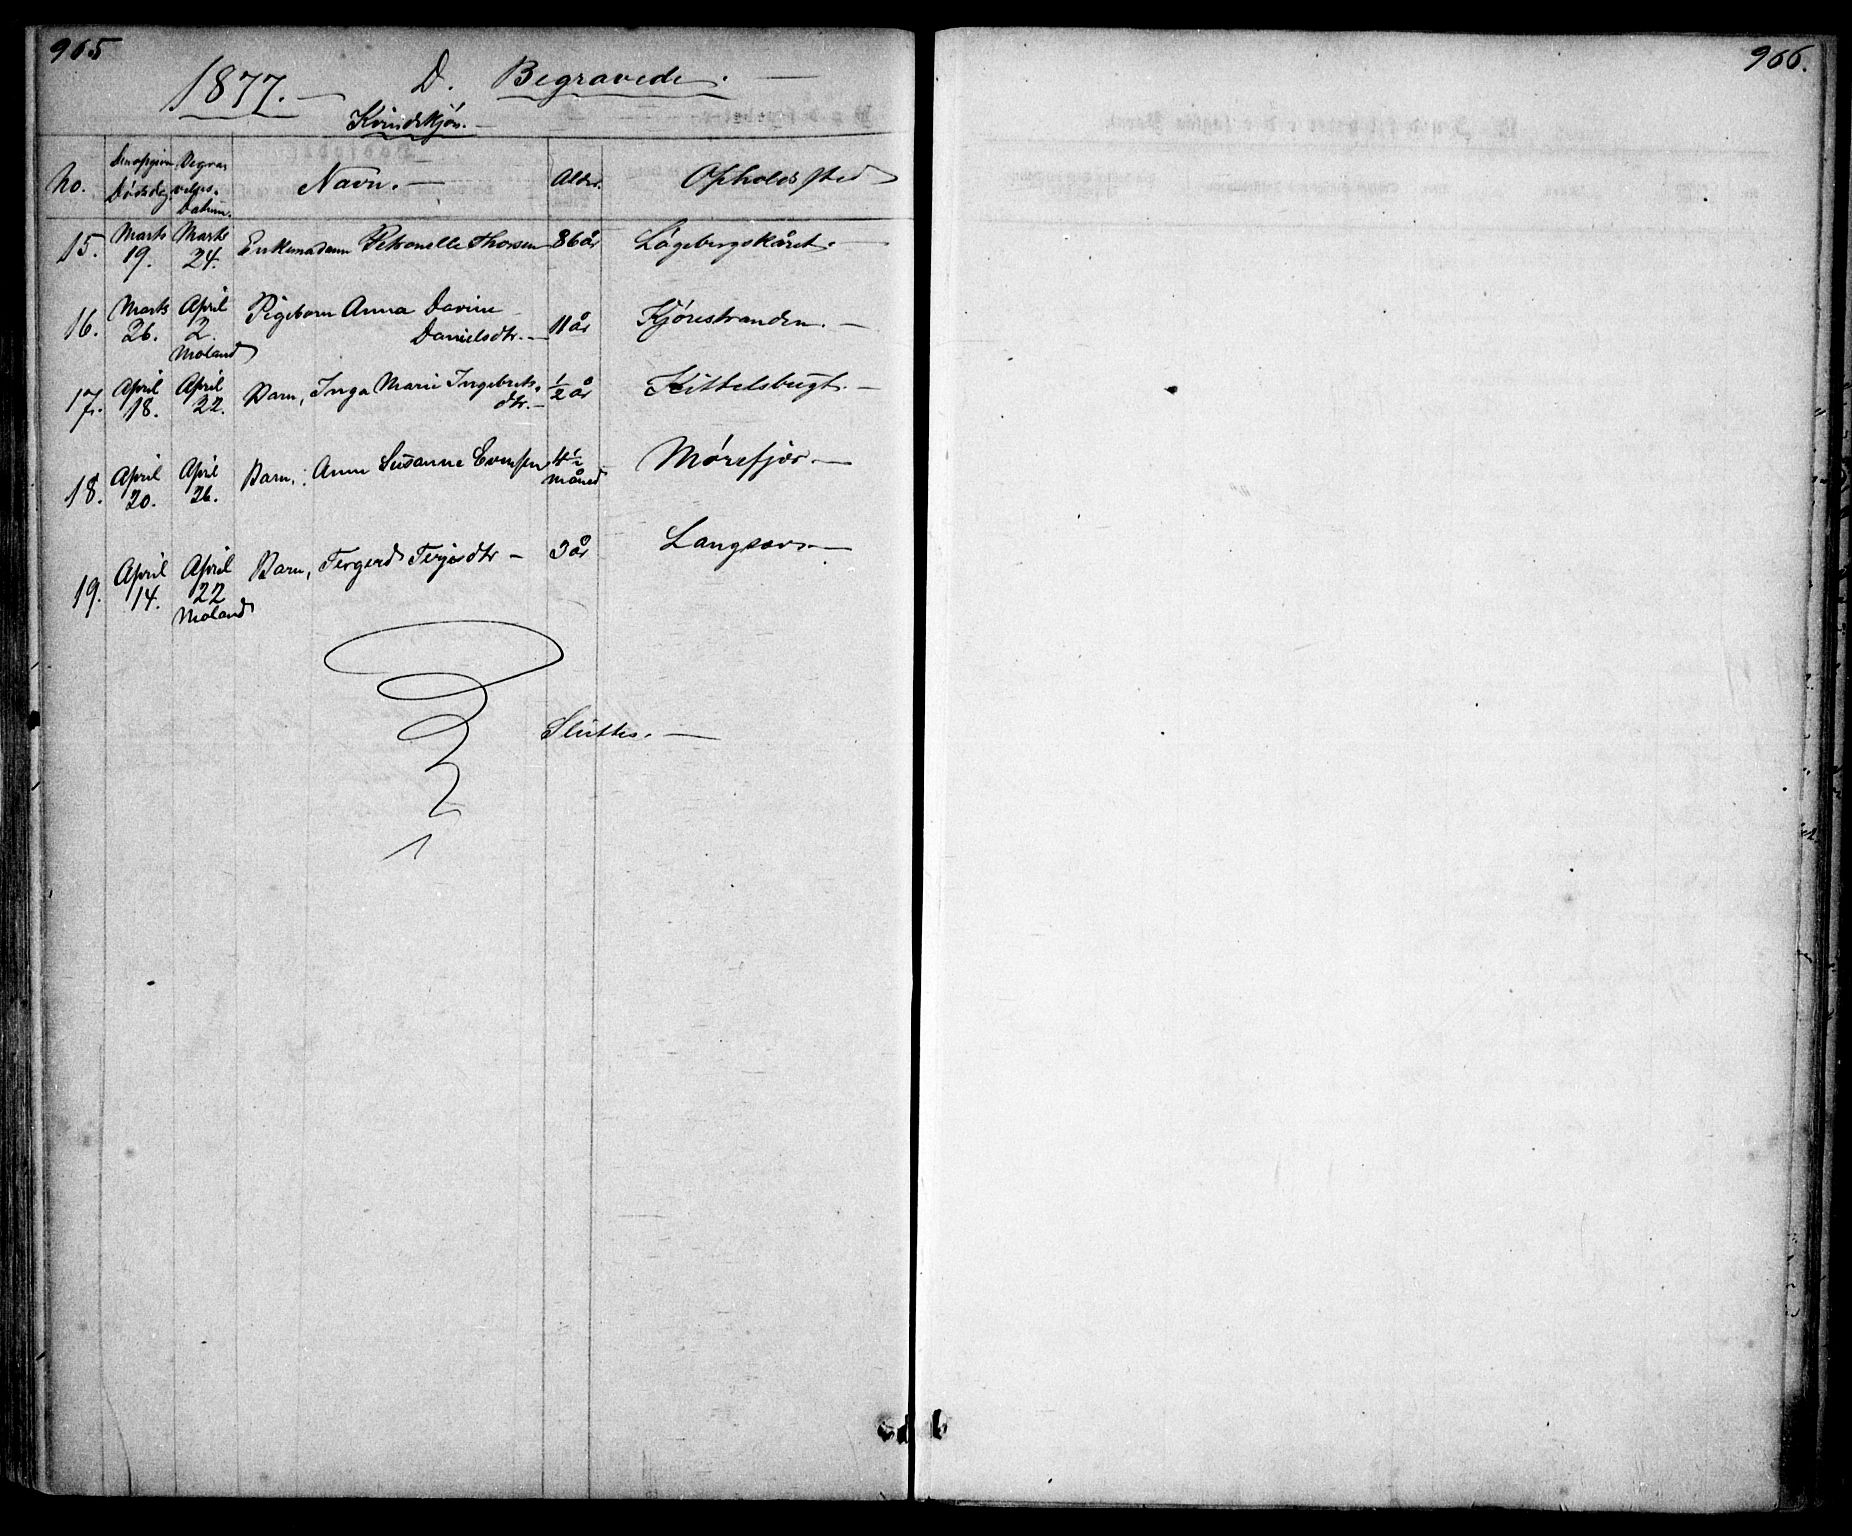 965
966.
1877. — D. Begravede. —
Kvindekjøn. —
No. Den opgivne Dødsdag. Begravelses. Datum. Navn. — Alder. Opholdssted
15. Marts 19. Marts 24. Enkemadam Petronelle Thorsen 86 år Lögebergskåret. —
16. Marts 26. April 2. Moland Pigebarn Anna Davine Danielsdtr. — 11 år Kjørestranden. —
17. April 18. April 22. Barn, Inga Marie Ingebrets. dtr. — ½ år Kittelsbugt. —
18. April 20. April 26. Barn, Anne Susanne Evensen 4½ måned Mørefjær —
19. April 14. April 22 Moland Barn, Tergerd Terjesdtr — 3 år Langsæv —
Sluttes. —